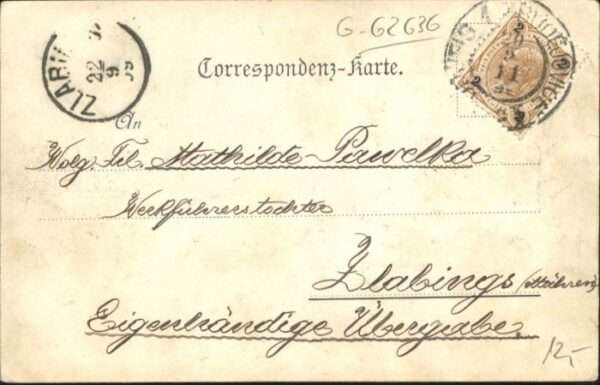 G-62636
ZLABIN
22
9
99
Correspondenz-Karte.
An
Wolg. Frl. Mathilde Pawelka
Werkführerstochter
Zlabings (Mähren)
Eigenhändige Übergabe.
12,-